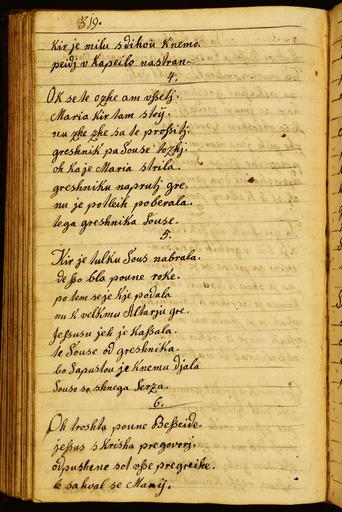 319.
Kir je milu s dihou k nemo.
peidj v Kapeilo na stran~
4.
Ok se te ozhe am vsselj.
Maria kir tam stoÿ.
nu zhe zhe sa te prossitj.
greshnik pa Souse tozhj.
oh kaje Maria strila.
greshniku naprutj gre.
nu je potleih poberala.
tega greshnika Souse.
5.
Kir je tulku Sous nabrala.
desso bla poune roke.
potem se je kje podala
nu k velkmu Altarju gre.
Jessusu jeh je kassala.
te Souse od greshnika.
bo Sapustou je k nemu djala
Souse so shnega Serza.
6.
Oh troshta poune Besseide.
jessus s Krisha pregovorj.
odpushene so t vsse pregreihe.
le sahval se Marij.